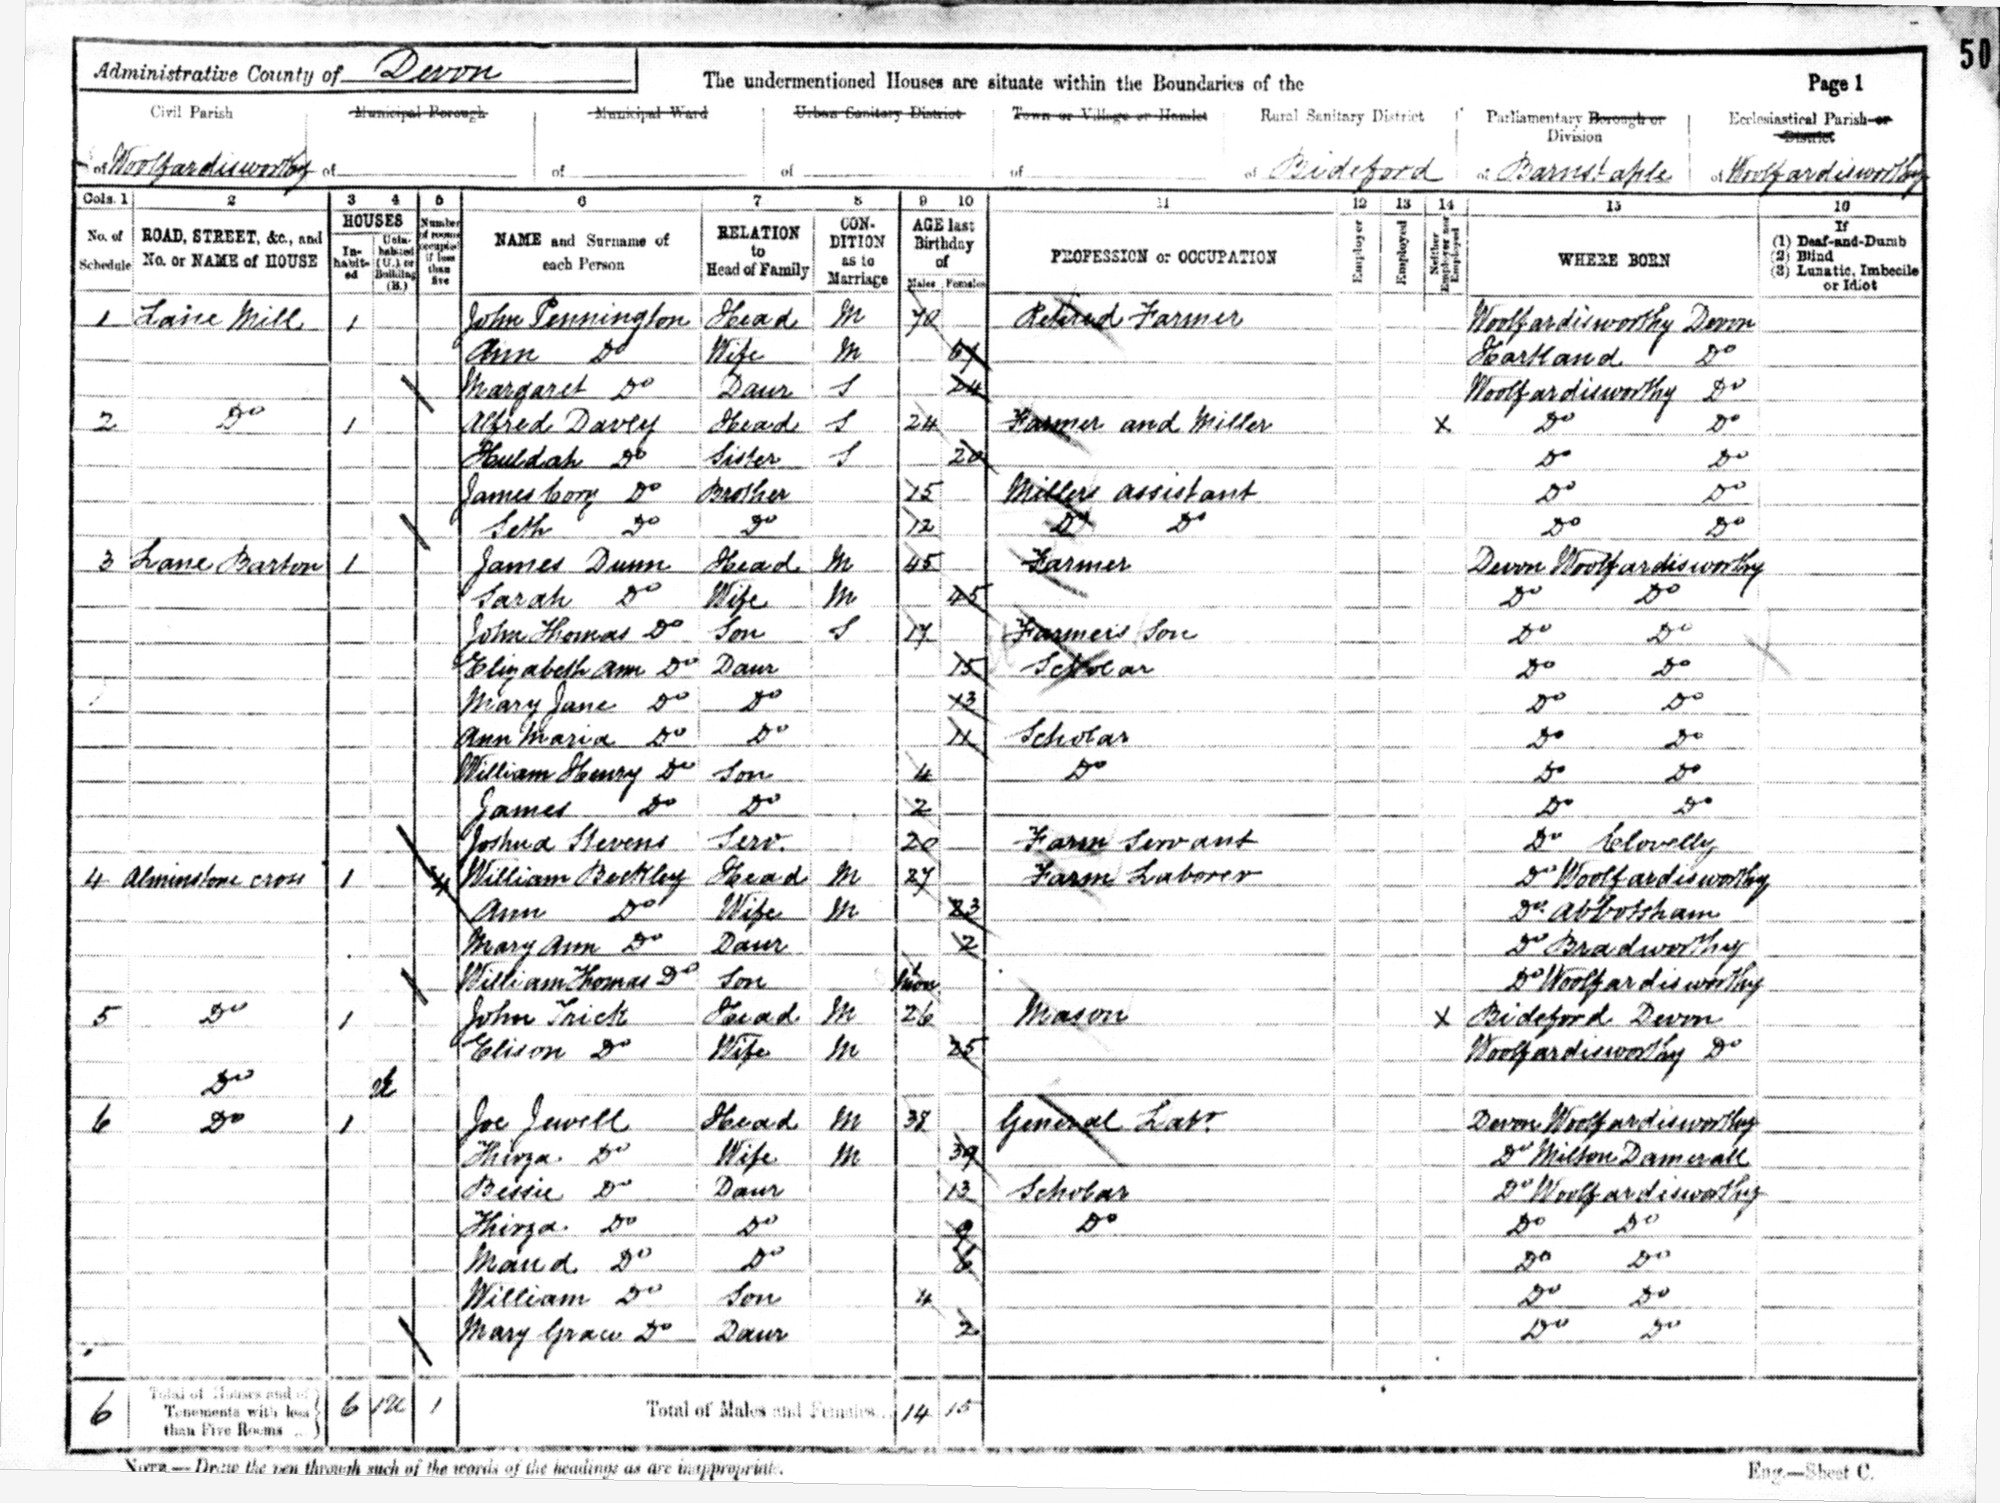 50
Administrative County of Devon The undermentioned Houses are situate within the Boundaries of the Page 1
Civil Parish Municipal Borough Municipal Ward Urban Sanitary District Town or Village or Hamlet Rural Sanitary District Parliamentary Borough or Division Ecclesiastical Parish or District
of Woolfardisworthy of of of of of Bideford of Barnstaple of Woolfardisworthy
Cols. 1 2 3 4 5 6 7 8 9 10 11 12 13 14 15 16
No. of Schedule ROAD, STREET, &c., and No. or NAME of HOUSE HOUSES Inhabited Uninhabited (U.) or Building (B.) Number of rooms occupied if less than five NAME and Surname of each Person RELATION to Head of Family CONDITION as to Marriage AGE last Birthday of Males Females PROFESSION or OCCUPATION Employer Employed Neither Employer nor Employed WHERE BORN If (1) Deaf-and-Dumb (2) Blind (3) Lunatic, Imbecile or Idiot
1 Lane Mill 1 John Pennington Head M 70 Retired Farmer Woolfardisworthy Devon
Ann Do Wife M Hartland Do
Margaret Do Daur S 24 Woolfardisworthy Do
2 Do 1 Alfred Davey Head S 24 Farmer and Miller X Do Do
Huldah Do Sister S 20 Do Do
James Cory Do Brother 15 Millers assistant Do Do
Seth Do Do 12 Do Do Do Do
3 Lane Barton 1 James Dunn Head M 45 Farmer Devon Woolfardisworthy
Sarah Do Wife M 45 Do Do
John Thomas Do Son S 17 Farmers Son Do Do
Elizabeth Ann Do Daur 15 Scholar Do Do
Mary Jane Do Do 13 Do Do
Ann Maria Do Do 11 Scholar Do Do
William Henry Do Son 4 Do Do Do
James Do Do 2 Do Do
Joshua Stevens Serv. 20 Farm Servant Do Clovelly
4 Alminstone cross 1 4 William Beckley Head M 27 Farm Laborer Do Woolfardisworthy
Ann Do Wife M 23 Do Abbotsham
Mary Ann Do Daur 2 Do Bradworthy
William Thomas Do Son Do Woolfardisworthy
5 Do 1 John Trick Head M 26 Mason X Bideford Devon
Elison Do Wife M 25 Woolfardisworthy Do
Do U
6 Do 1 Joe Jewell Head M 38 General Labr. Devon Woolfardisworthy
Thirza Do Wife M 39 Do Milton Damerall
Bessie Do Daur 13 Scholar Do Woolfardisworthy
Thirza Do Do 9 Do Do Do
Maud Do Do 6 Do Do
William Do Son 4 Do Do
Mary Grace Do Daur 2 Do Do
6 Total of Houses and of Tenements with less than Five Rooms 6 1U 1 Total of Males and Females... 14 15
NOTE.—Draw the pen through such of the words of the headings as are inappropriate. Eng.—Sheet C.